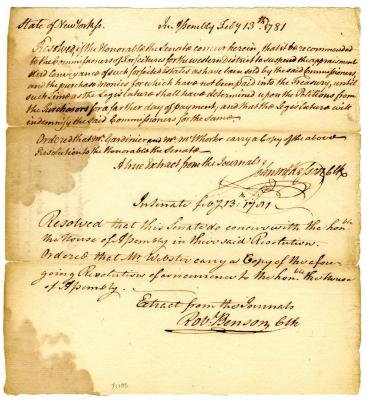 State of New York ss. In Assembly Feby 13th 1781
Resolved, if the Honorable the Senate concur herein, that it be recommended
to the Commissioners of Forfeitures for the western district to suspend the appraisement
and Conveyance of such forfeited estates as have been sold by the said Commissioners,
and the purchase monies for which have not been paid into the Treasury, until
such time as the Legislature shall have determined upon the Petitions from
the Purchasors for a farther day of payment, and that the Legislature will
indemnify the said Commissioners for the same.
Ordered that Mr. Gardinier and Mr. McWhorter carry a Copy of the above
Resolution to the Honorable the Senate.
A true Extract from the Journals
John McKesson Clk
In Senate feby 13th 1781
Resolved that this Senate do concur with the honble
the House of Assembly in their said Resolution.
Ordered that Mr Webster carry a Copy of the afore
going Resolution of concurrence to the honble the house
of Assembly.
Extract from the Journals
Robt Benson, Clk